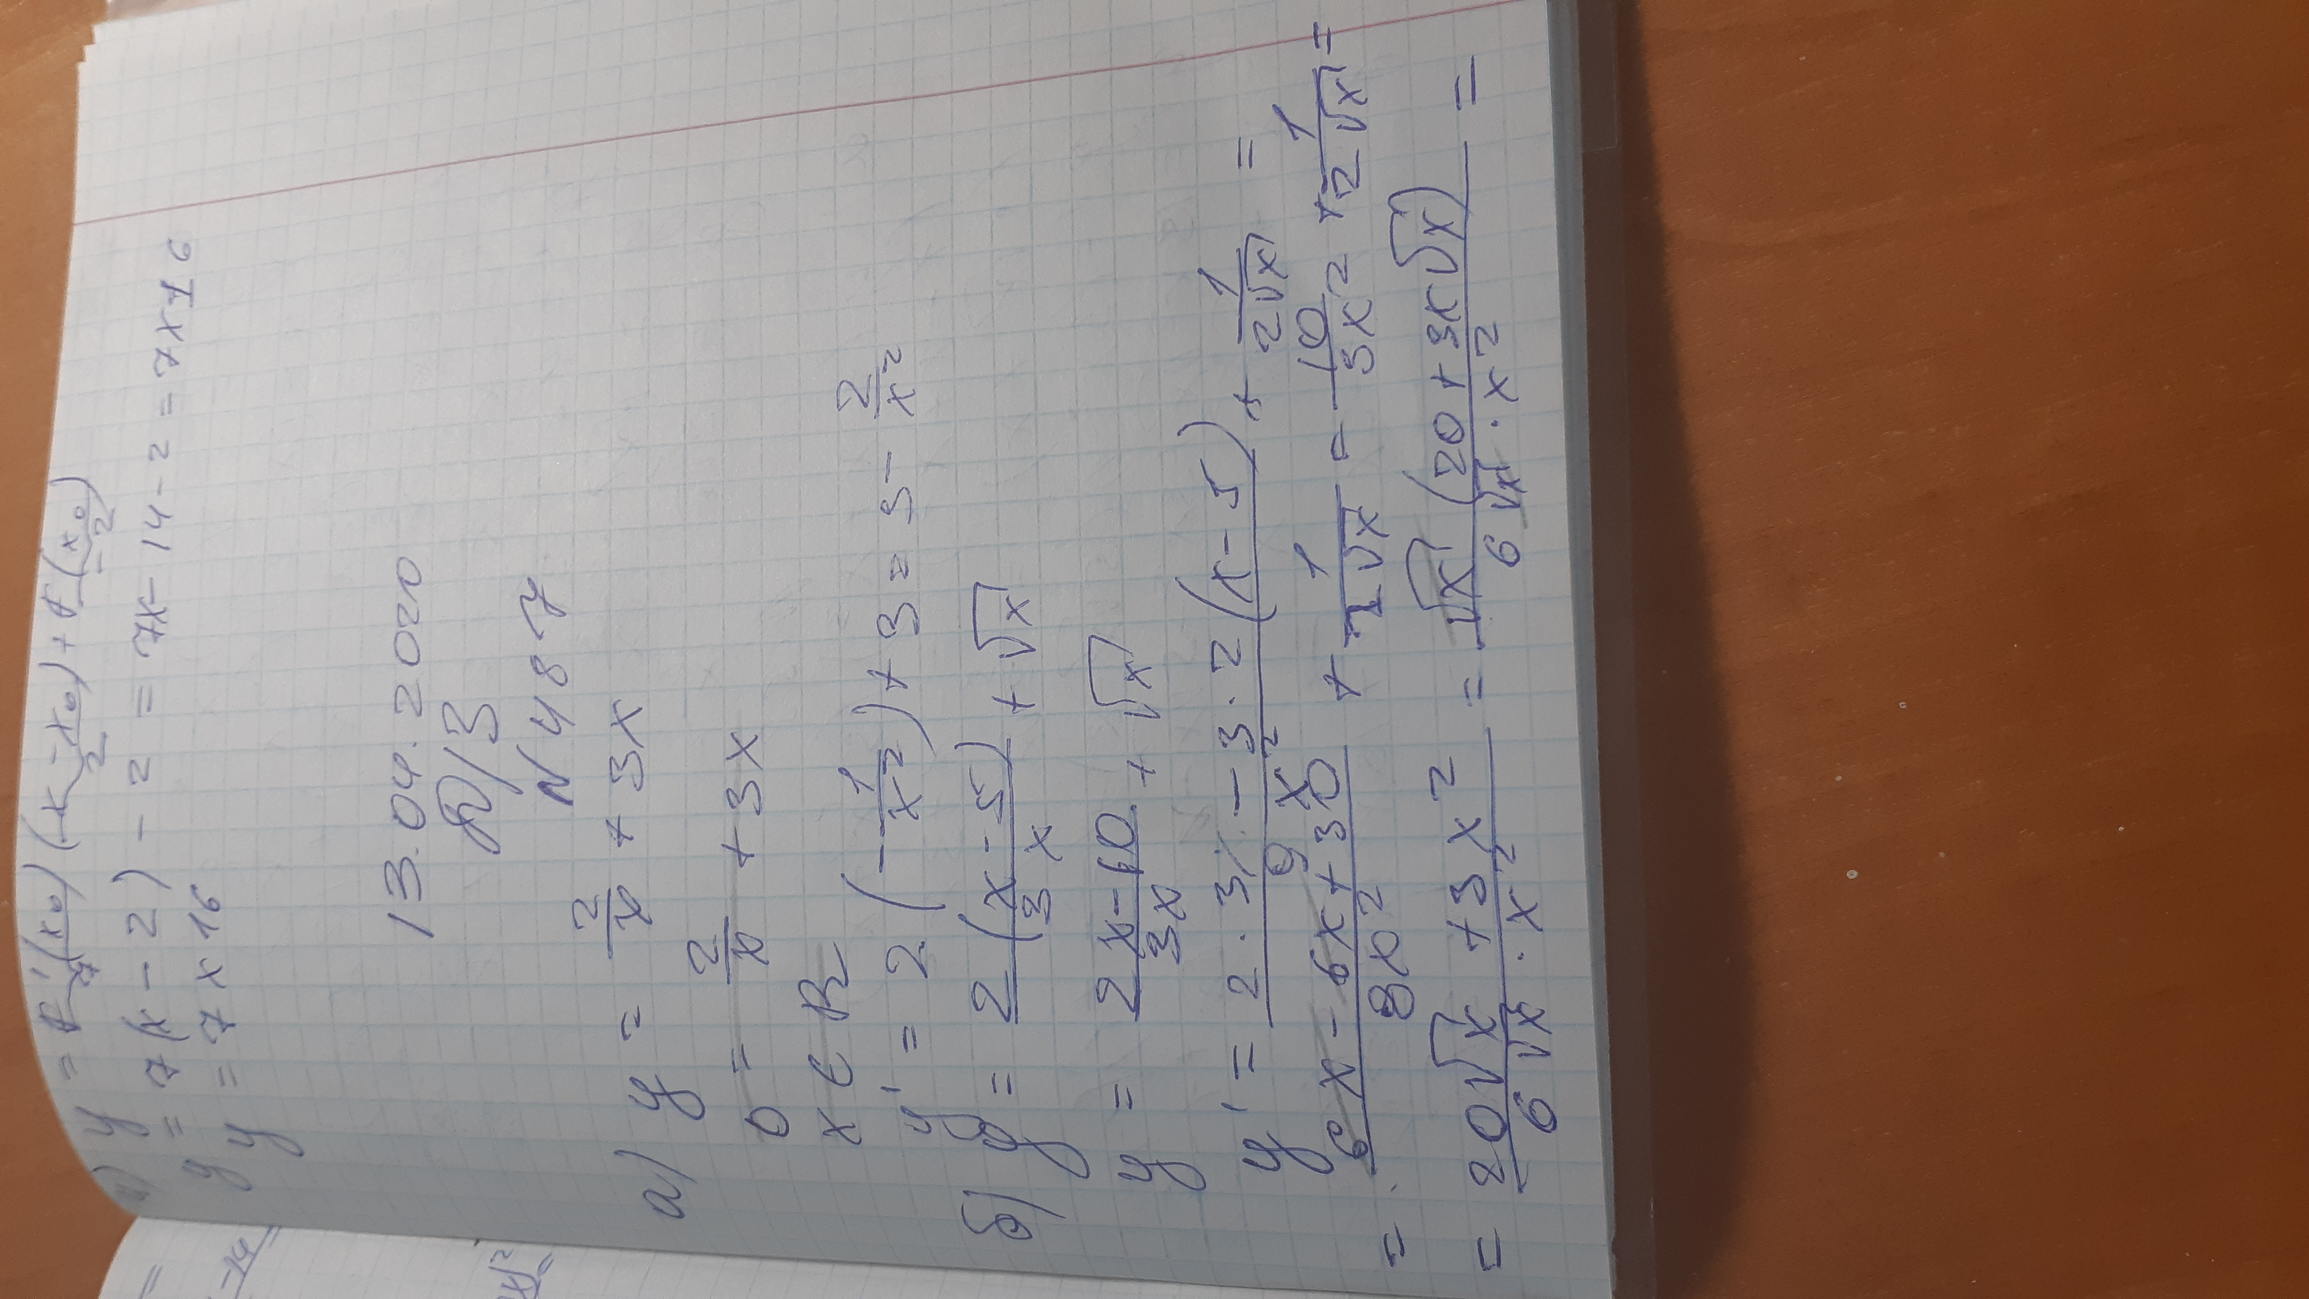 в) y = f'(x₀)(x - x₀) + f(x₀)
7 2 = 2
y = 7(x - 2) - 2 = 7x - 14 - 2 = 7x16
y = 7x16
13.04.2020
Д/З
N 487
а) y = 2/x + 3x
0 = 2/x + 3x
x ∈ R
y' = 2(-1/x²) + 3 = 3 - 2/x²
б) y = 2(x-5)/3x + √x
y = 2x-10/3x + √x
y' = 2·3x - 3·2(x-5)/9x² + 1/2√x =
= 6x - 6x + 30/9x² + 1/2√x = 10/3x² + 1/2√x =
= 20√x + 3x²/6√x · x² = √x(20 + 3x√x)/6√x · x² =
-14